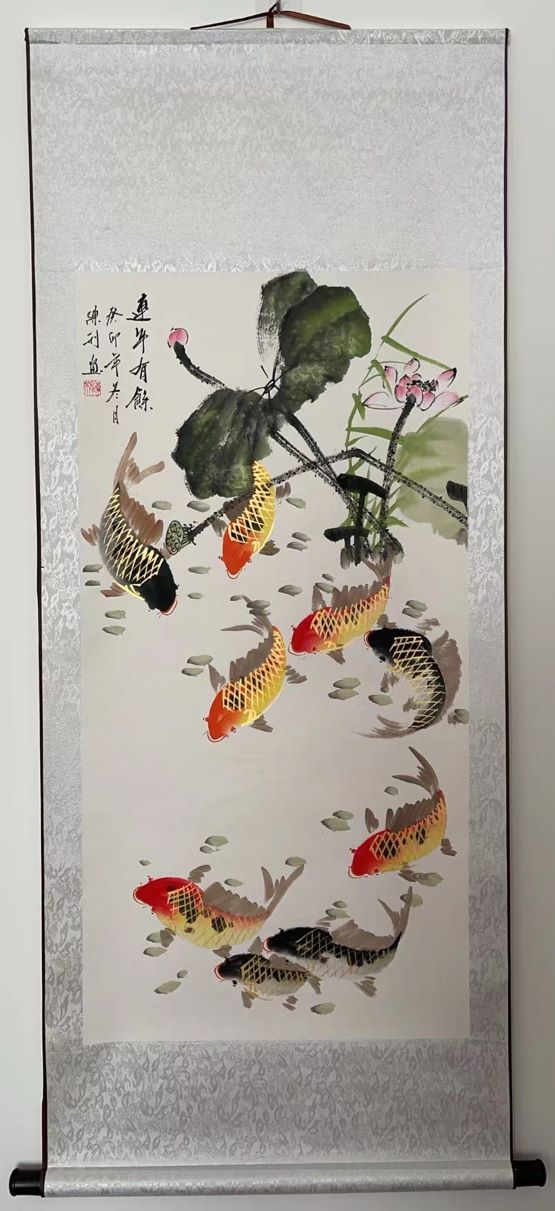 連年有餘
癸卯年冬月
陳利画